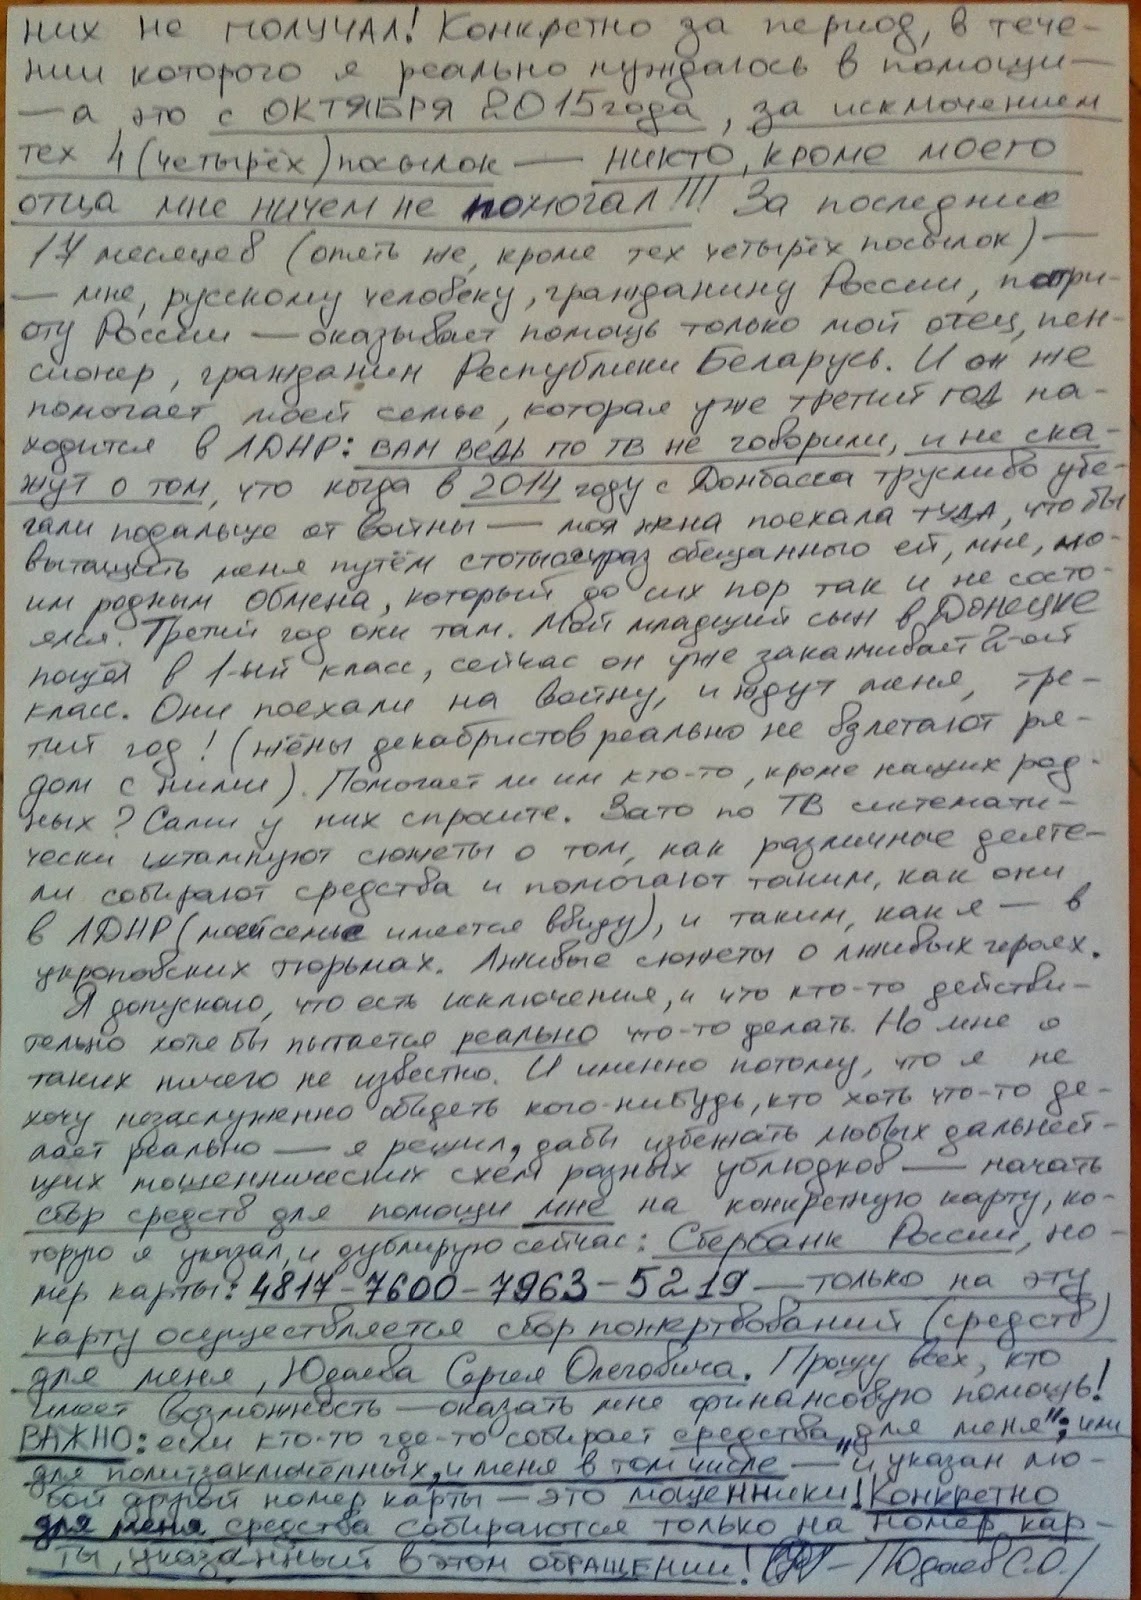 них не получал! Конкретно за период, в тече-
нии которого я реально нуждаюсь в помощи —
— а это с ОКТЯБРЯ 2015 года, за исключением
тех 4 (четырёх) посылок — никто, кроме моего
отца мне ничем не помогал!!! За последние
17 месяцев (опять же, кроме тех четырёх посылок) —
— мне, русскому человеку, гражданину России, патри-
оту России — оказывает помощь только мой отец, пен-
сионер, гражданин Республики Беларусь. И он же
помогает моей семье, которая уже третий год на-
ходится в ЛДНР: ВАМ ВЕДЬ ПО ТВ не говорили, и не ска-
жут о том, что когда в 2014 году с Донбасса трусливо убе-
гали подальше от войны — моя жена поехала ТУДА, что бы
вытащить меня путём стотысячраз обещанного ей, мне, мо-
им родным обмена, который до сих пор так и не состо-
ялся. Третий год они там. Мой младший сын в Донецке
пошёл в 1-ый класс, сейчас он уже заканчивает 2-ой
класс. Они поехали на войну, и ждут меня, тре-
тий год! (жёны декабристов реально не взлетают ря-
дом с ними). Помогает ли им кто-то, кроме наших род-
ных? Сами у них спросите. Зато по ТВ системати-
чески штампуют сюжеты о том, как различные деяте-
ли собирают средства и помогают таким, как они
в ЛДНР (моя семья имеется ввиду), и таким, как я — в
укроповских тюрьмах. Лживые сюжеты о лживых героях.
Я допускаю, что есть исключения, и что кто-то действи-
тельно хотя бы пытается реально что-то делать. Но мне о
таких ничего не известно. И именно потому, что я не
хочу незаслуженно обидеть кого-нибудь, кто хоть что-то де-
лает реально — я решил, дабы избежать любых дальней-
щих мошеннических схем разных ублюдков — начать
сбор средств для помощи мне на конкретную карту, ко-
торую я указал, и дублирую сейчас: Сбербанк России, но-
мер карты: 4817-7600-7963-5219 — только на эту
карту осуществляется сбор пожертвований (средств)
для меня, Юдаева Сергея Олеговича. Прошу всех, кто
имеет возможность — оказать мне финансовую помощь!
ВАЖНО: если кто-то где-то собирает средства „для меня", или
для политзаключённых, и меня в том числе — и указан лю-
бой другой номер карты — это мошенники! Конкретно
для меня средства собираются только на номер кар-
ты, указанный в этом обращении! — /Юдаев С.О./